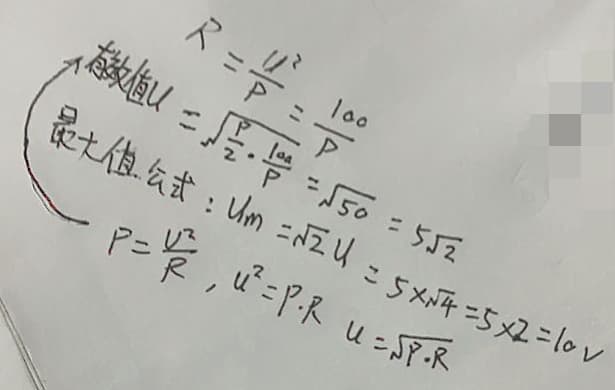 R = U²/P = 100/P
有效值U = √(P/2 · 100/P) = √50 = 5√2
最大值公式: Um = √2 U = 5×√4 = 5×2 = 10V
P = U²/R , U² = P·R U = √P·R